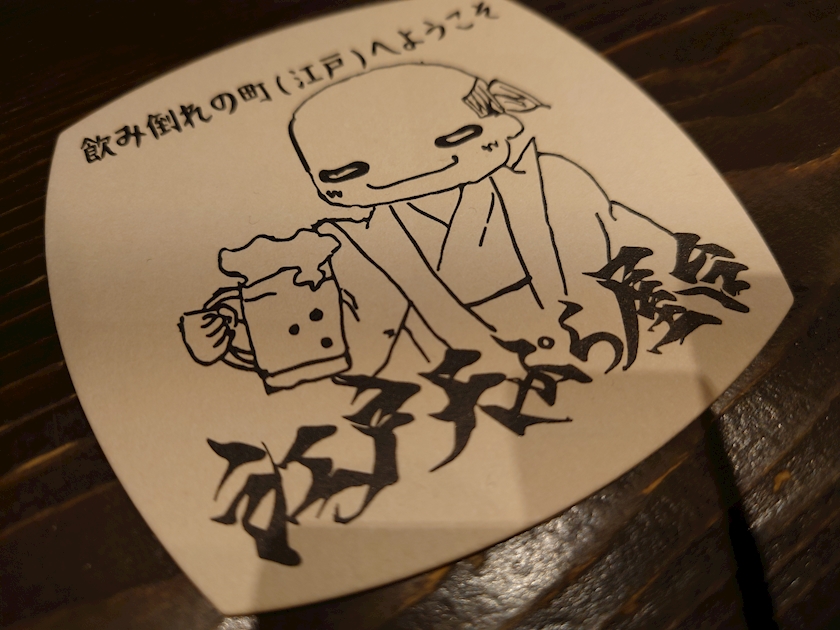 飲み倒れの町(江戸)へようこそ
天ぷら